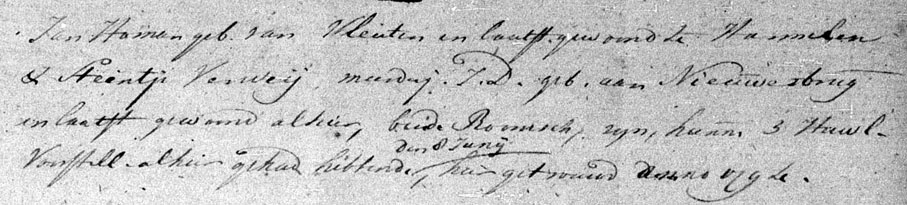 Jan Homan geb. van Vleuten en laatst gewoond te Harmelen
& Steintje Verweij, meerderj. J.D. geb. aan Nieuwerbrug
en laatst gewoond alhier, beide Roomsch, zijn, hunne 3 Huwl.
den 8 Junij
Voorstell. alhier gehad hebbende, hier getrouwd Anno